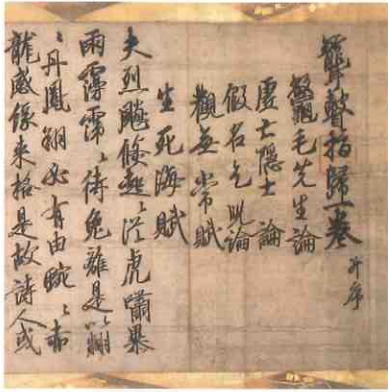 聾瞽指歸一卷 并序
鼈毛先生論
虚亡隠士論
假名乞兒論
觀無常賦
生死海賦
夫烈飈倏起從虎嘯暴
雨霶霈待兔離是以翩
〻丹鳳翔必有由蜿〻赤
龍感緣来格是故詩人或